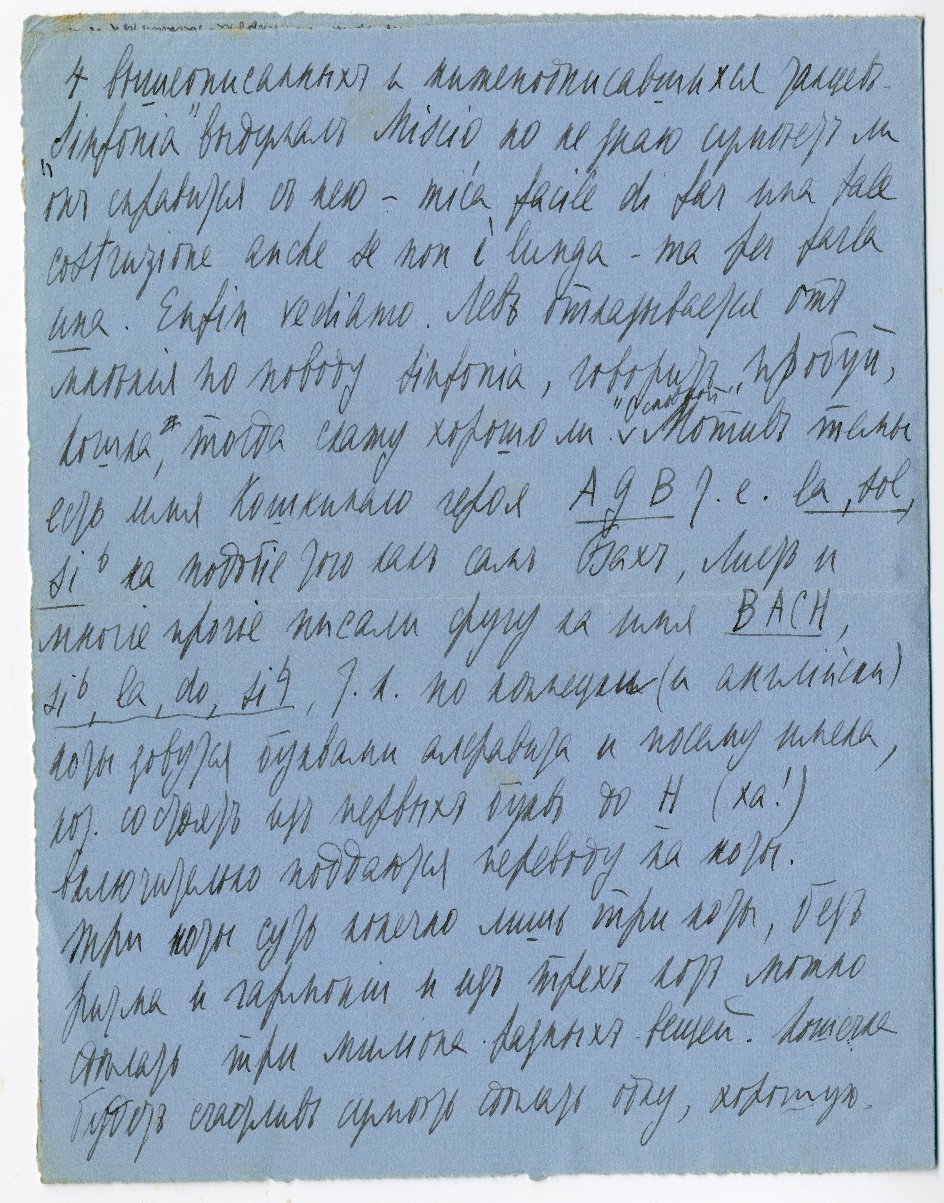 4 вышеописанныхъ и нижеподписавшихся зайцевъ.
„Sinfonia" выдумалъ Miscio но не знаю сумѣетъ ли
онъ справится съ нею – mica facile di far una tale
costruzione anche se non è lunga – ma per farla
una. Enfin vediamo. Левъ отказывается отъ
мнѣнія по поводу Sinfonia, говоритъ „пробуй,
кошка", тогда скажу хорошо ли. Мотивъ темы
"Основной"
есть имя Кошкинаго героя A G B т. е. la, sol,
si b на подобіе того какъ самъ Бахъ, Листъ и
многіе прочіе писали фугу на имя BACH,
si b, la, do, si ♮, т. к. по нѣмецки (и англійски)
ноты зовутся буквами алфавита и посему имена,
кот. состоятъ изъ первыхъ буквъ до H (ха!)
включительно поддаются переводу на ноты.
Три ноты суть конечно лишь три ноты, безъ
ритма и гармоніи и изъ трехъ нотъ можно
сдѣлать три миліона разныхъ вещей. Кошечка
будетъ счастливъ сумѣть сдѣлать одну, хорошую.